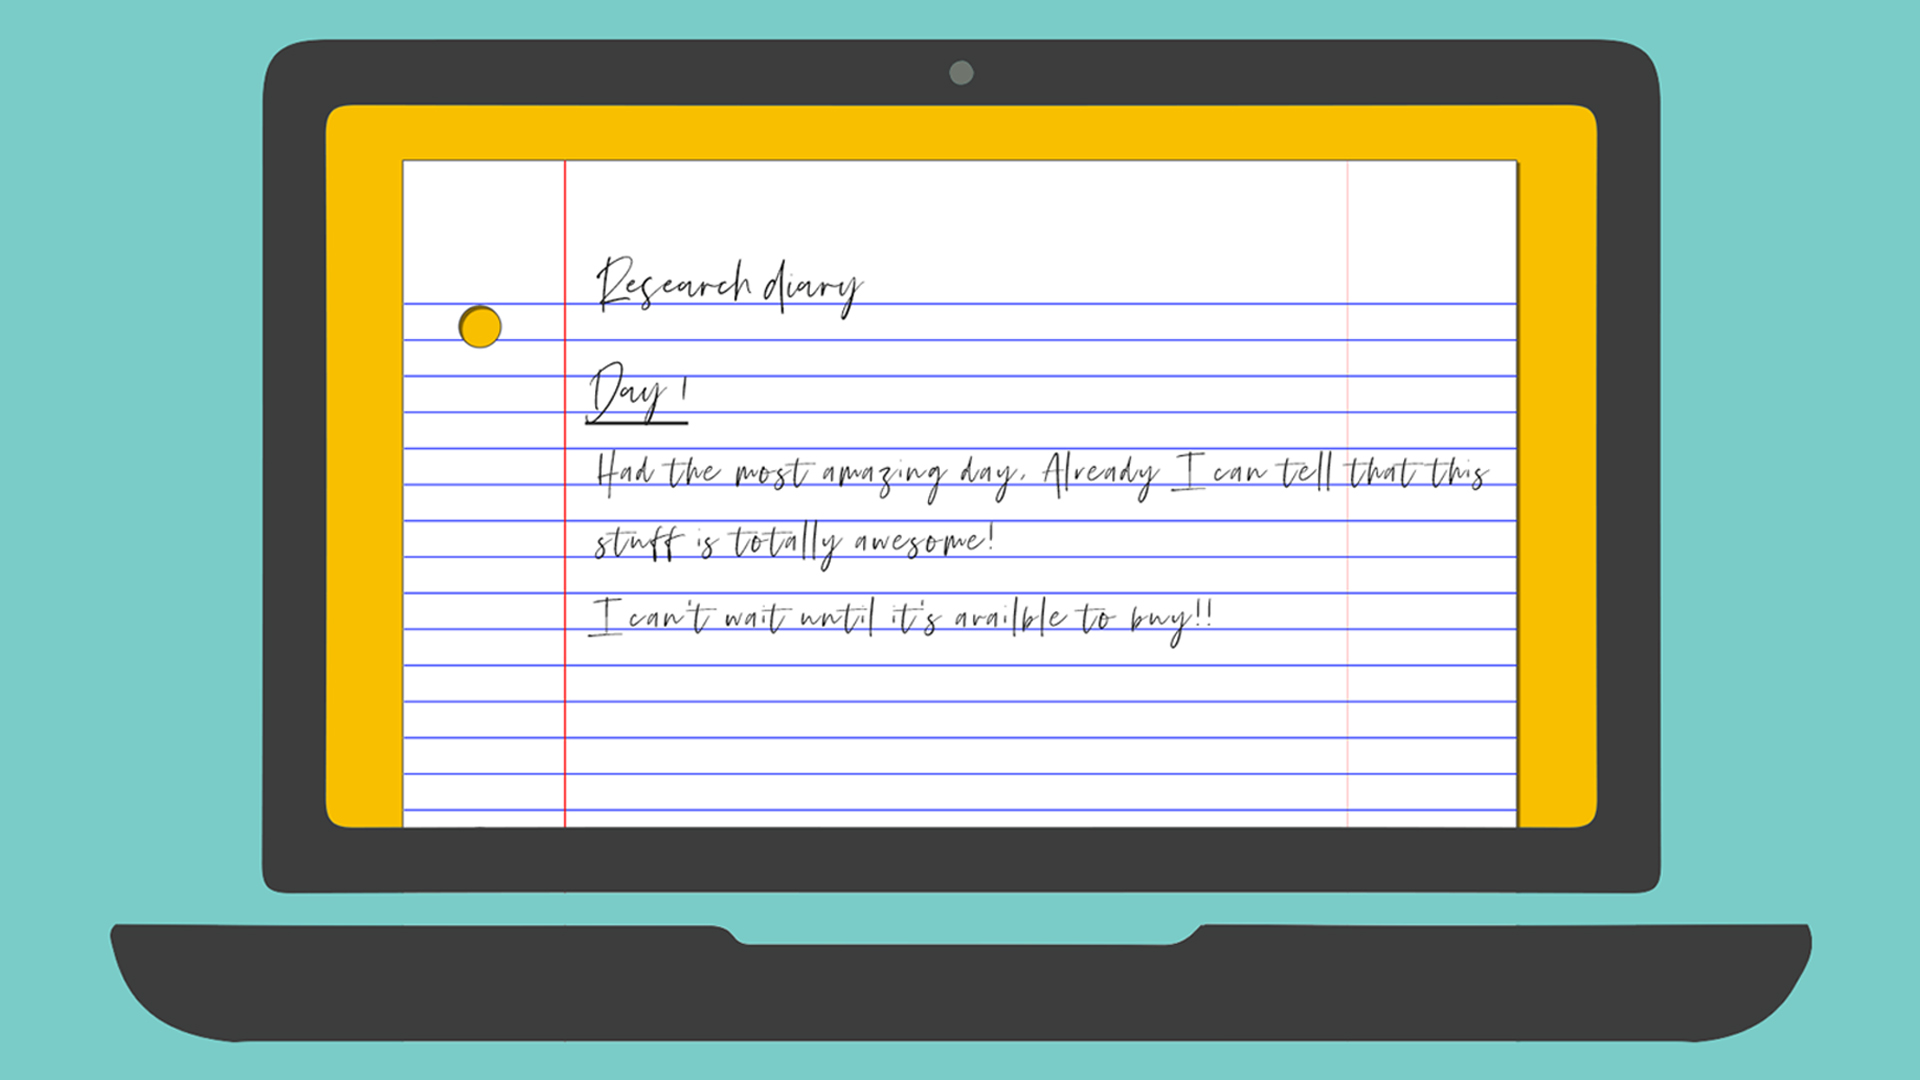 Research diary
Day 1
Had the most amazing day. Already I can tell that this
stuff is totally awesome!
I can't wait until it's availble to buy!!